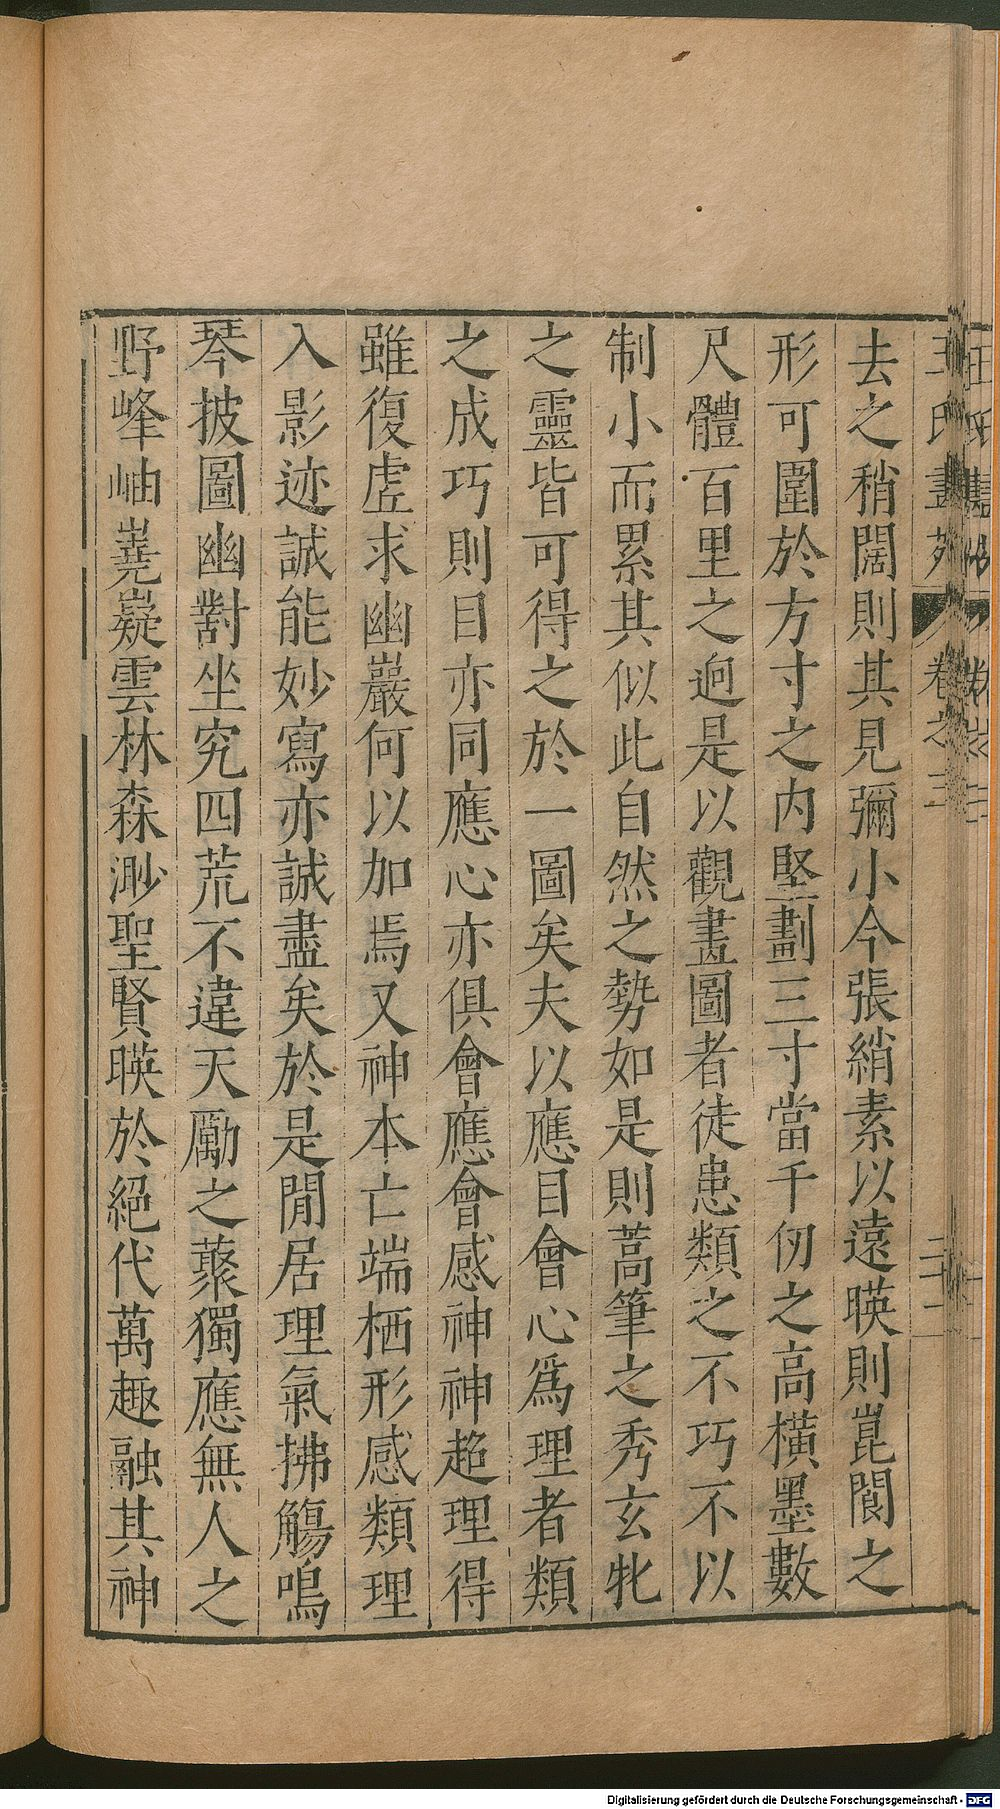 王氏畫苑 卷之三 二二
去之稍闊則其見彌小今張綃素以遠暎則崑閬之
形可圍於方寸之内堅劃三寸當千仞之高橫墨數
尺體百里之逈是以觀畫圖者徒患類之不巧不以
制小而累其似此自然之勢如是則蒿筆之秀玄牝
之靈皆可得之於一圖矣夫以應目會心爲理者類
之成巧則目亦同應心亦俱會應會感神神超理得
雖復虗求幽巖何以加焉又神本亡端栖形感類理
入影迹誠能妙寫亦誠盡矣於是閒居理氣拂觴鳴
琴披圖幽對坐究四荒不違天勵之藂獨應無人之
野峰岫嶤嶷雲林森渺聖賢暎於絕代萬趣融其神
Digitalisierung gefördert durch die Deutsche Forschungsgemeinschaft - DFG